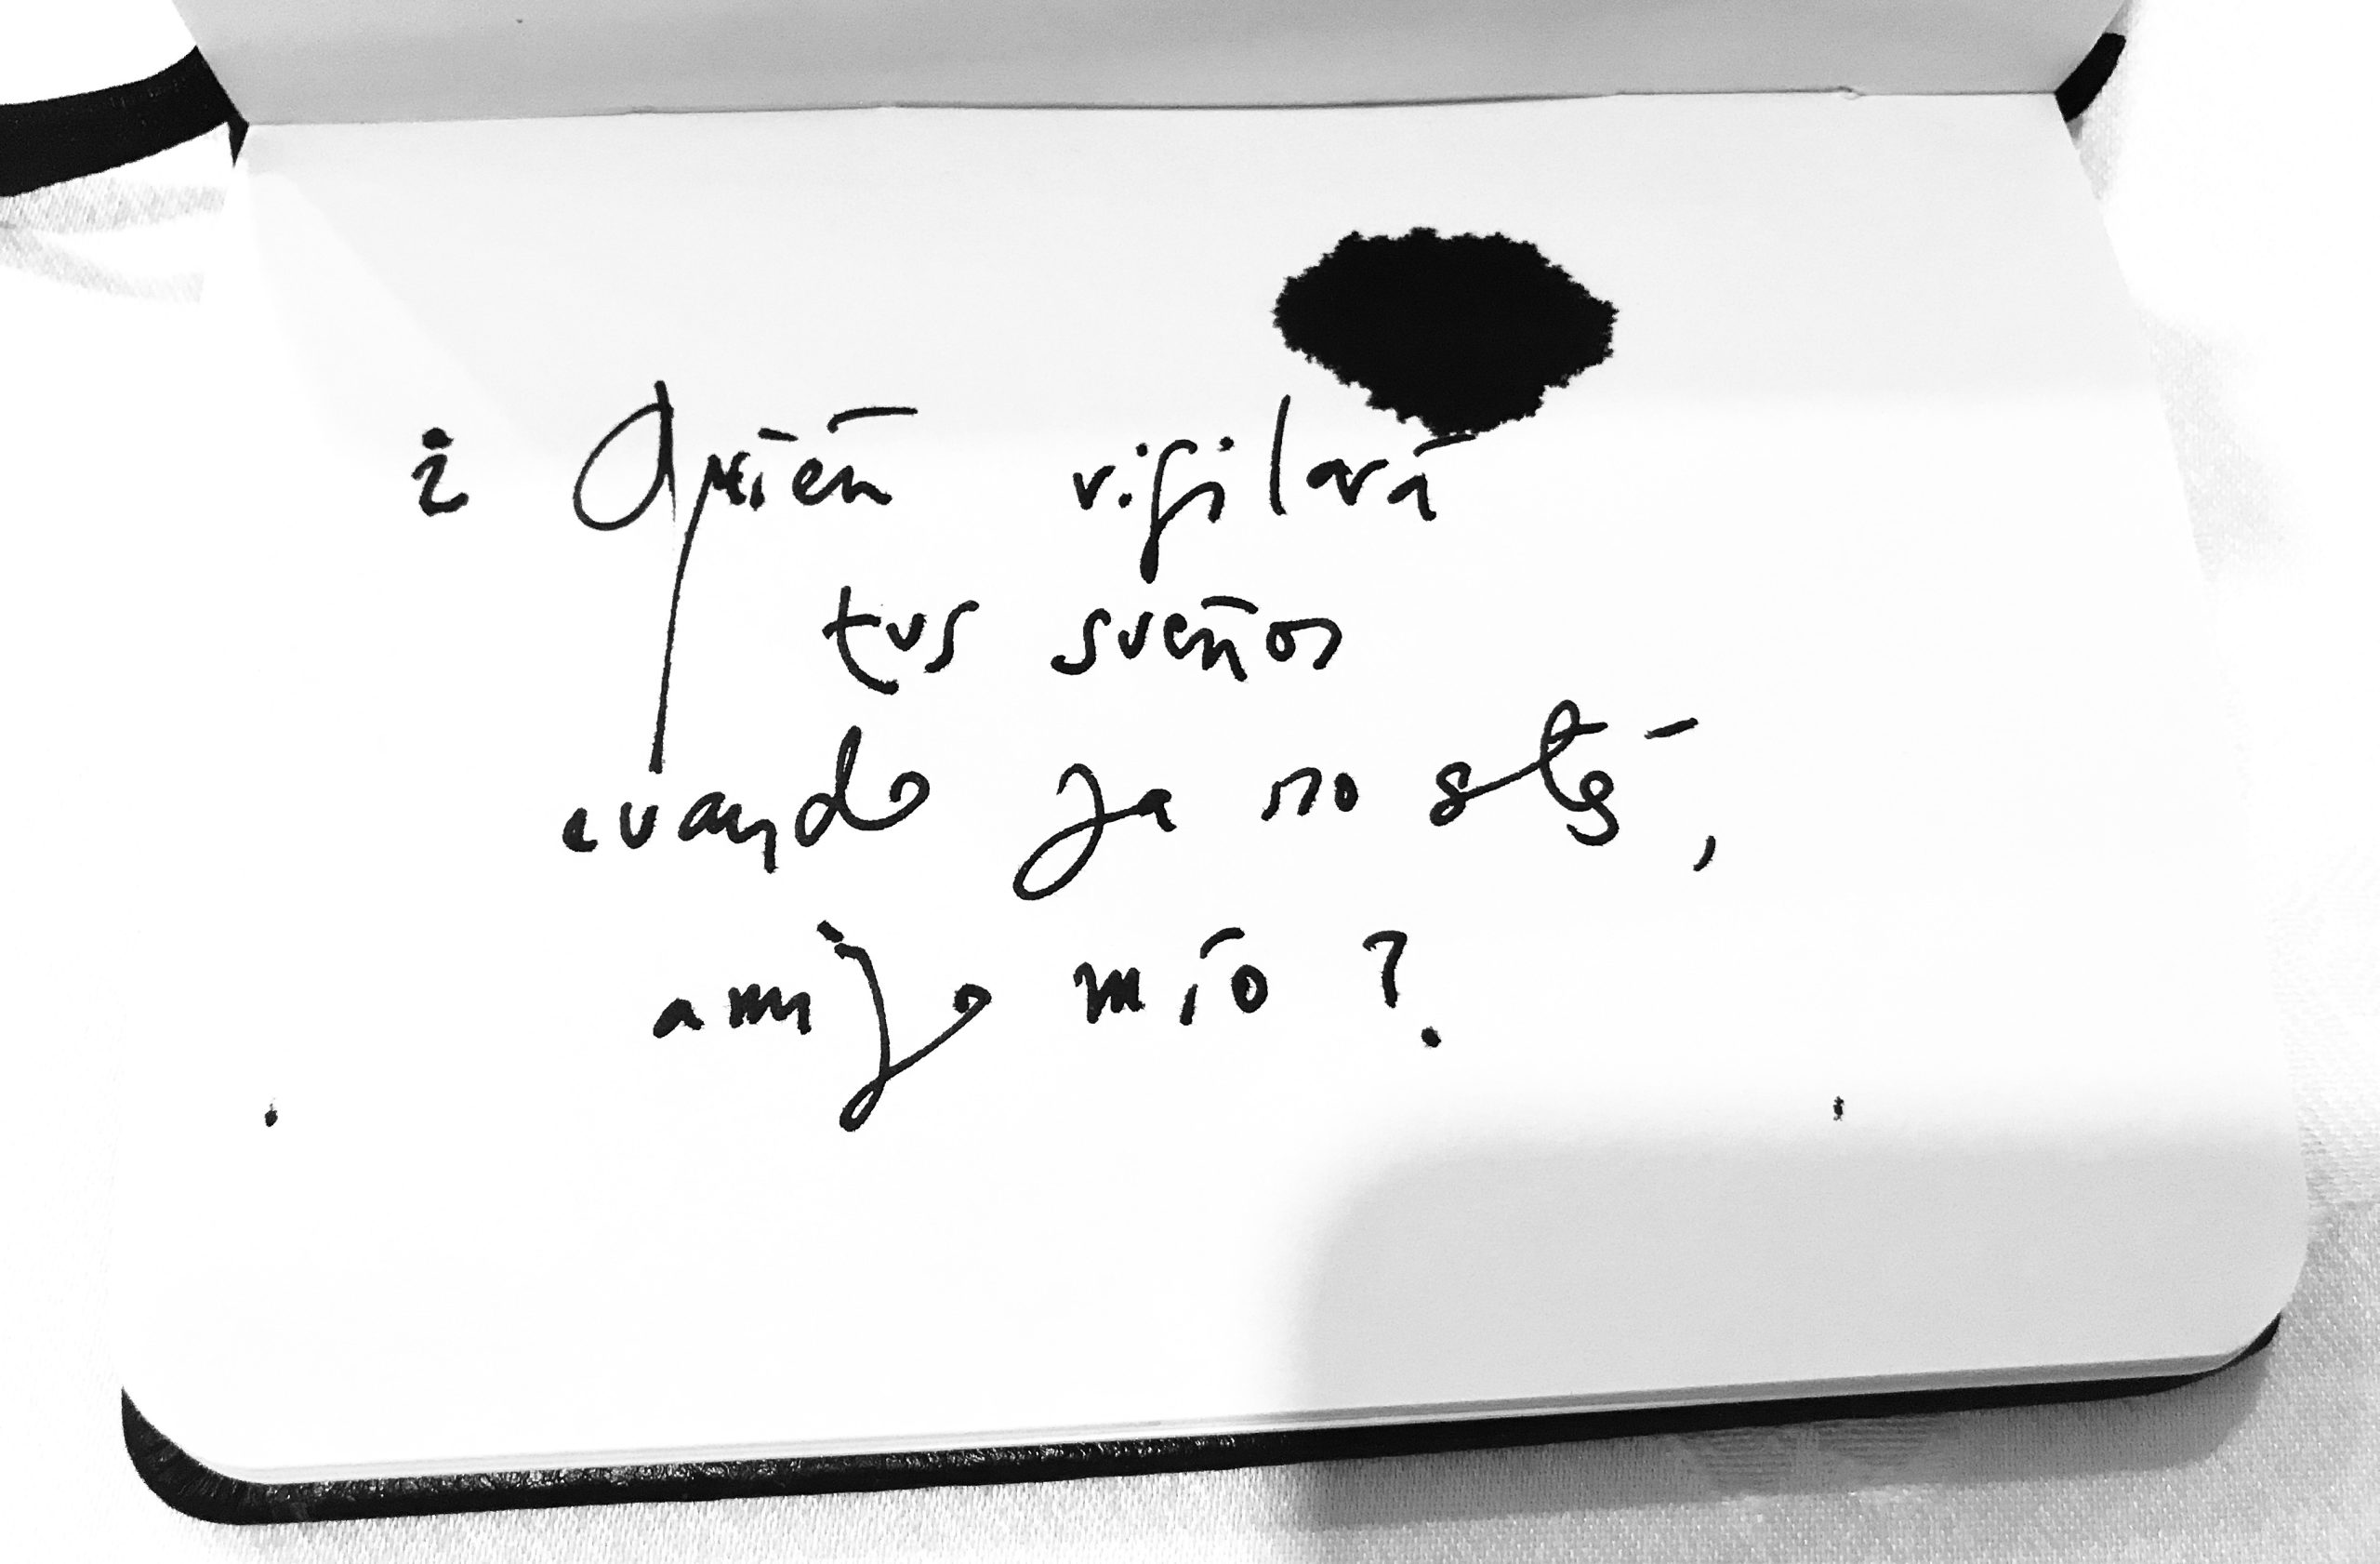 ¿Quién vigilará
tus sueños
cuando ya no esté,
amigo mío?